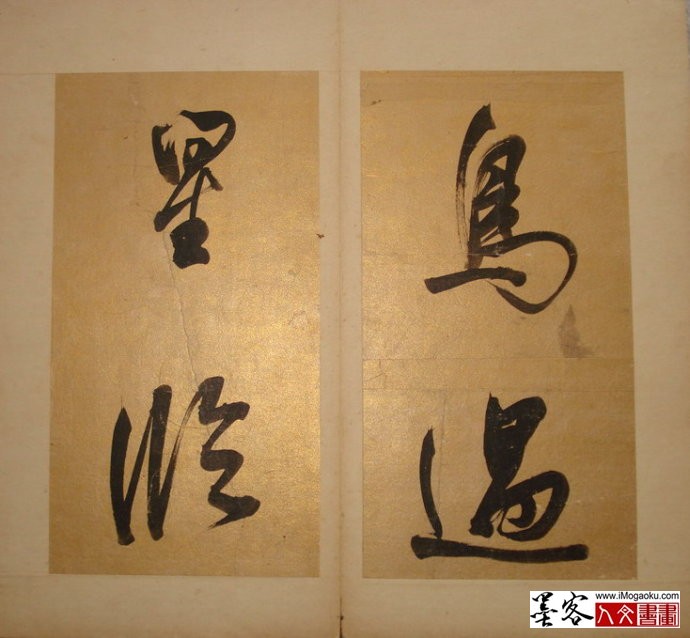 鳥過
星臨
墨客
www.iMogaoku.com
人文書畫